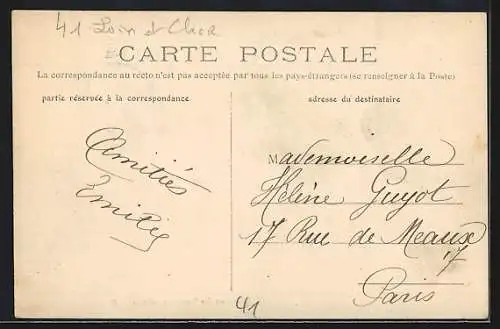 41 Loir et Cher
CARTE POSTALE
La correspondance au recto n'est pas acceptée par tous les pays étrangers (se renseigner à la Poste)
partie réservée à la correspondance
adresse du destinataire
Amitiés
Emilie
Mademoiselle
Hélène Guyot
17 Rue de Meaux
17
Paris
41